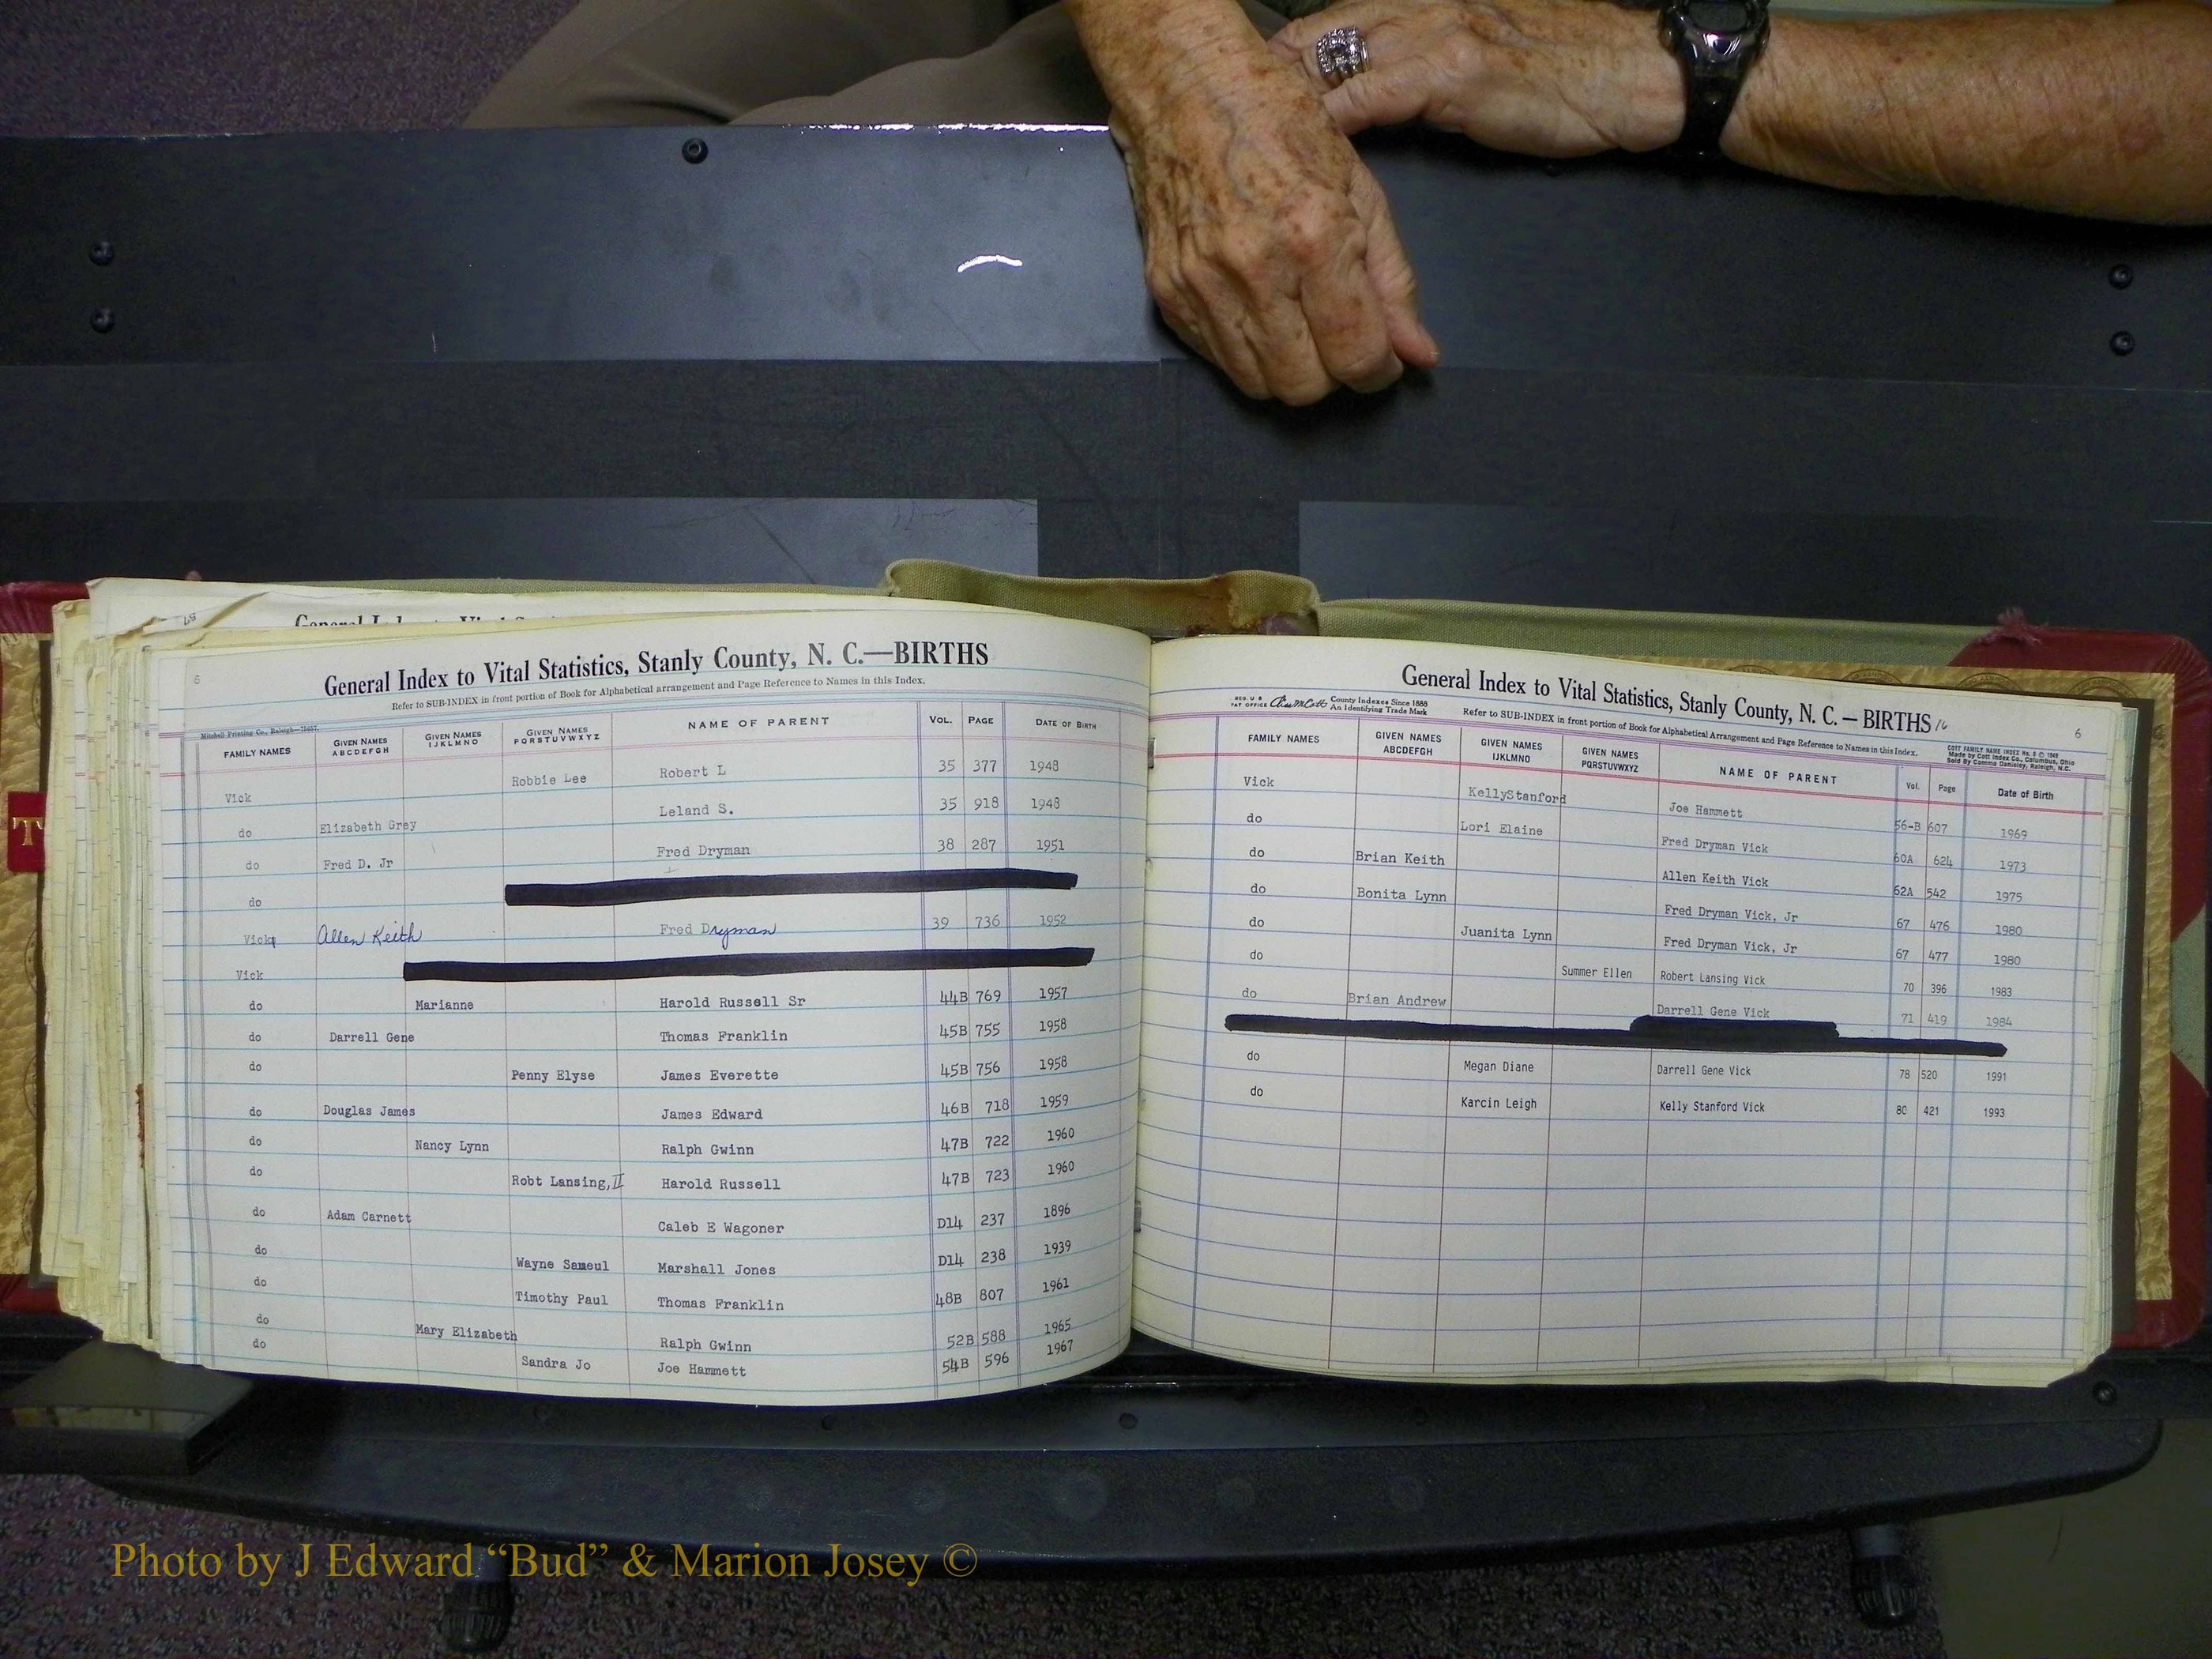 57
General Index to Vital S
6
General Index to Vital Statistics, Stanly County, N. C.—BIRTHS
Refer to SUB-INDEX in front portion of Book for Alphabetical arrangement and Page Reference to Names in this Index.
Mitchell Printing Co., Raleigh—75457.
FAMILY NAMES GIVEN NAMES ABCDEFGH GIVEN NAMES IJKLMNO GIVEN NAMES PQRSTUVWXYZ NAME OF PARENT VOL. PAGE DATE OF BIRTH
Vick Robbie Lee Robert L 35 377 1948
do Elizabeth Grey Leland S. 35 918 1948
do Fred D. Jr Fred Dryman 38 287 1951
do
Vick Allen Keith Fred Dryman 39 736 1952
Vick
do Marianne Harold Russell Sr 44B 769 1957
do Darrell Gene Thomas Franklin 45B 755 1958
do Penny Elyse James Everette 45B 756 1958
do Douglas James James Edward 46B 718 1959
do Nancy Lynn Ralph Gwinn 47B 722 1960
do Robt Lansing, II Harold Russell 47B 723 1960
do Adam Carnett Caleb E Wagoner D14 237 1896
do Wayne Sameul Marshall Jones D14 238 1939
do Timothy Paul Thomas Franklin 48B 807 1961
do Mary Elizabeth Ralph Gwinn 52B 588 1965
do Sandra Jo Joe Hammett 54B 596 1967
General Index to Vital Statistics, Stanly County, N. C. — BIRTHS 16
REG. U S PAT OFFICE County Indexes Since 1888 An Identifying Trade Mark
Refer to SUB-INDEX in front portion of Book for Alphabetical Arrangement and Page Reference to Names in this Index.
6
COTT FAMILY NAME INDEX No. 5 © 1949
Made by Cott Index Co., Columbus, Ohio
Sold By Comme Danieley, Raleigh, N.C.
FAMILY NAMES GIVEN NAMES ABCDEFGH GIVEN NAMES IJKLMNO GIVEN NAMES PQRSTUVWXYZ NAME OF PARENT Vol. Page Date of Birth
Vick KellyStanford Joe Hammett 56-B 607 1969
do Lori Elaine Fred Dryman Vick 60A 624 1973
do Brian Keith Allen Keith Vick 62A 542 1975
do Bonita Lynn Fred Dryman Vick, Jr 67 476 1980
do Juanita Lynn Fred Dryman Vick, Jr 67 477 1980
do Summer Ellen Robert Lansing Vick 70 396 1983
do Brian Andrew Darrell Gene Vick 71 419 1984
do Megan Diane Darrell Gene Vick 78 520 1991
do Karcin Leigh Kelly Stanford Vick 80 421 1993
T
Photo by J Edward “Bud” & Marion Josey ©